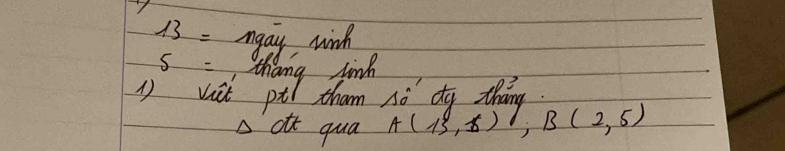 13 = ngày sinh
5 = tháng sinh
1) Viết pt tham số đg thẳng.
Δ đt qua A(13, 5), B(2,5)